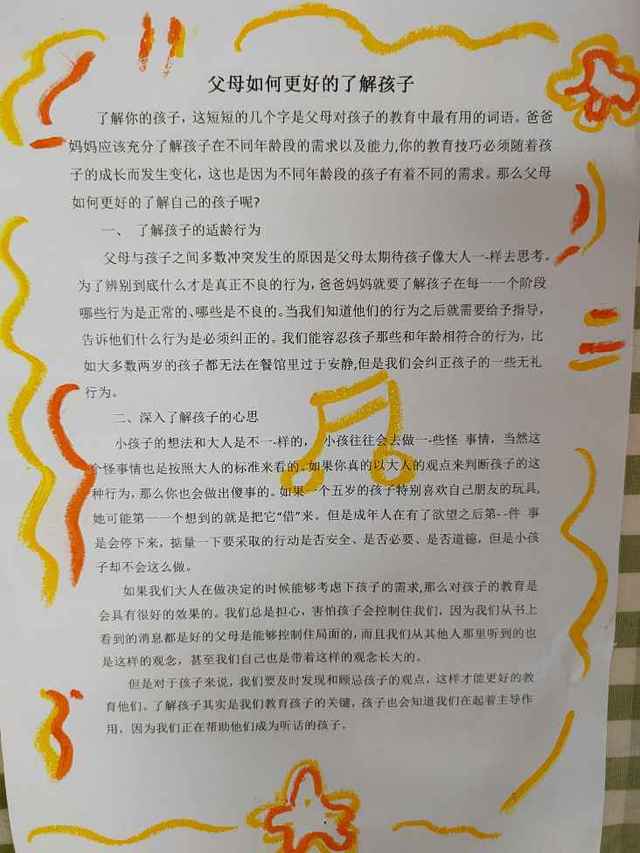 父母如何更好的了解孩子
了解你的孩子，这短短的几个字是父母对孩子的教育中最有用的词语。爸爸
妈妈应该充分了解孩子在不同年龄段的需求以及能力,你的教育技巧必须随着孩
子的成长而发生变化，这也是因为不同年龄段的孩子有着不同的需求。那么父母
如何更好的了解自己的孩子呢?
一、 了解孩子的适龄行为
父母与孩子之间多数冲突发生的原因是父母太期待孩子像大人一-样去思考.
为了辨别到底什么才是真正不良的行为,爸爸妈妈就要了解孩子在每一一个阶段
哪些行为是正常的、哪些是不良的。当我们知道他们的行为之后就需要给予指导，
告诉他们什么行为是必须纠正的。我们能容忍孩子那些和年龄相符合的行为，比
如大多数两岁的孩子都无法在餐馆里过于安静,但是我们会纠正孩子的一些无礼
行为。
二、深入了解孩子的心思
小孩子的想法和大人是不一-样的， 小孩往往会去做一-些怪 事情，当然这
个怪事情也是按照大人的标准来看的。如果你真的以大人的观点来判断孩子的这
种行为，那么你也会做出傻事的。如果一个五岁的孩子特别喜欢自己朋友的玩具,
她可能第一一个想到的就是把它“借”来。但是成年人在有了欲望之后第--件 事
是会停下来，掂量一下要采取的行动是否安全、是否必要、是否道德，但是小孩
子却不会这么做。
如果我们大人在做决定的时候能够考虑下孩子的需求,那么对孩子的教育是
会具有很好的效果的。我们总是担心，害怕孩子会控制住我们，因为我们从书上
看到的消息都是好的父母是能够控制住局面的,而且我们从其他人那里听到的也
是这样的观念，甚至我们自己也是带着这样的观念长大的。
但是对于孩子来说，我们要及时发现和顾忌孩子的观点，这样才能更好的教
育他们。了解孩子其实是我们教育孩子的关键，孩子也会知道我们在起着主导作
用，因为我们正在帮助他们成为听话的孩子。